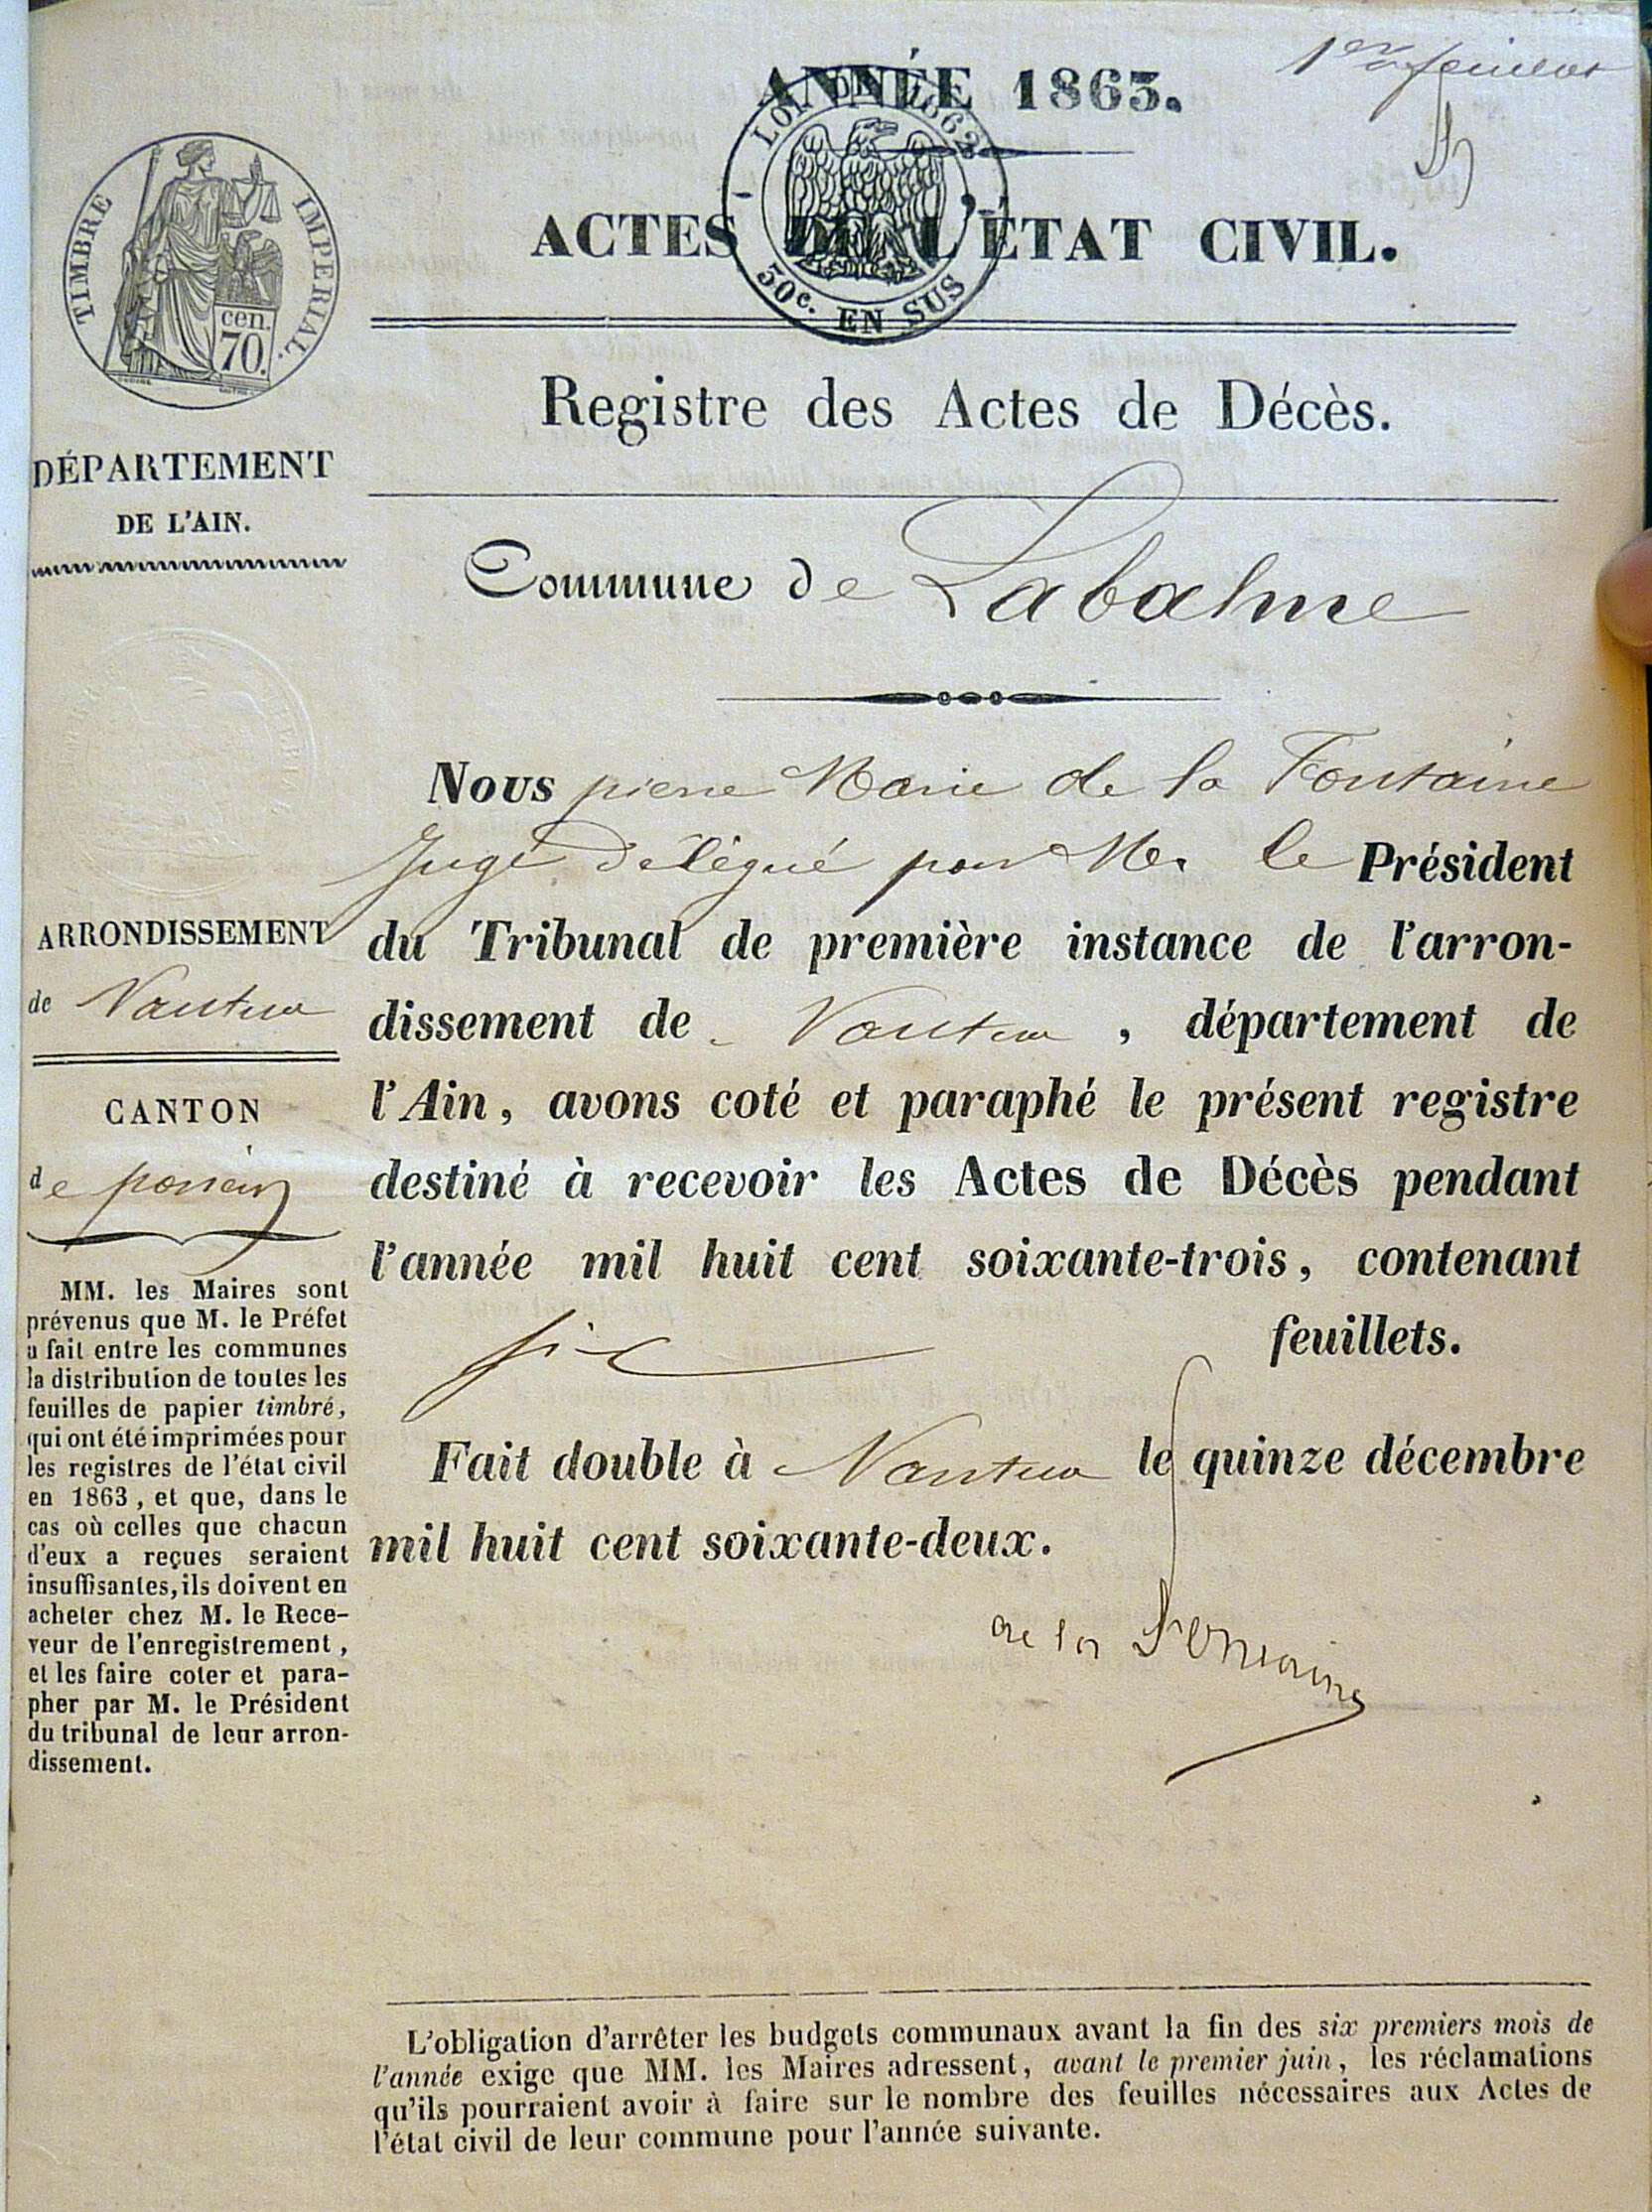 1er feuillet
ANNÉE 1863.
LOI DE 1862
50c. EN SUS
ACTES DE L'ÉTAT CIVIL.
TIMBRE IMPERIAL.
cen.
70.
Registre des Actes de Décès.
DÉPARTEMENT
DE L'AIN.
Commune de Labalme
Nous pierre Marie de la Fontaine
Juge délégué par Mr le Président
du Tribunal de première instance de l'arron-
dissement de Nantua, département de
l'Ain, avons coté et paraphé le présent registre
destiné à recevoir les Actes de Décès pendant
l'année mil huit cent soixante-trois, contenant
six feuillets.
Fait double à Nantua le quinze décembre
mil huit cent soixante-deux.
de la Fontaine
ARRONDISSEMENT
de Nantua
CANTON
de poncin
MM. les Maires sont
prévenus que M. le Préfet
a fait entre les communes
la distribution de toutes les
feuilles de papier timbré,
qui ont été imprimées pour
les registres de l'état civil
en 1863, et que, dans le
cas où celles que chacun
d'eux a reçues seraient
insuffisantes, ils doivent en
acheter chez M. le Rece-
veur de l'enregistrement,
et les faire coter et para-
pher par M. le Président
du tribunal de leur arron-
dissement.
L'obligation d'arrêter les budgets communaux avant la fin des six premiers mois de
l'année exige que MM. les Maires adressent, avant le premier juin, les réclamations
qu'ils pourraient avoir à faire sur le nombre des feuilles nécessaires aux Actes de
l'état civil de leur commune pour l'année suivante.